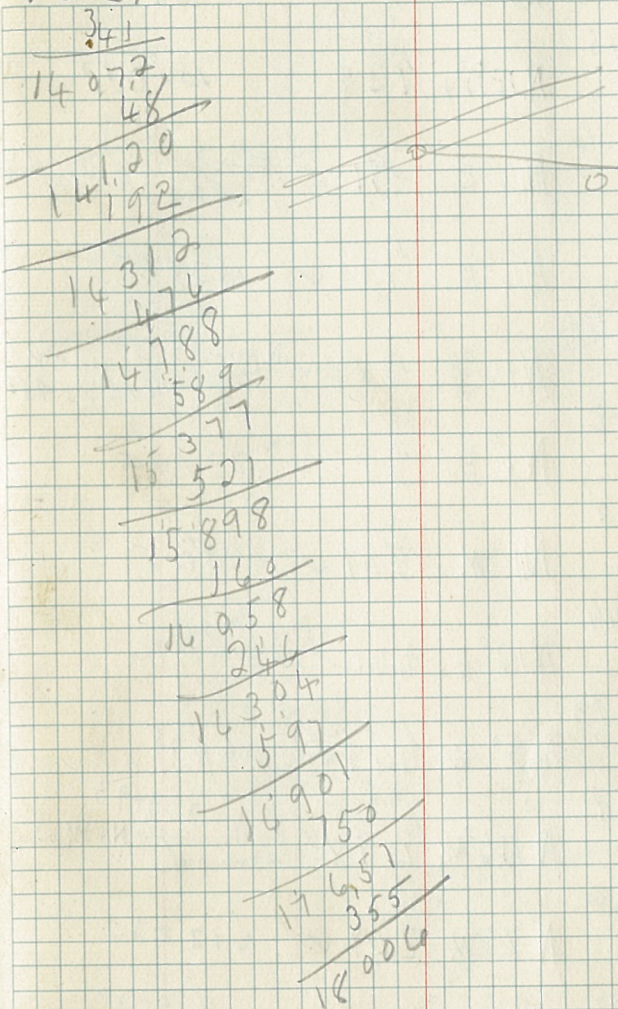 341
14 072
48
14 120
192
14 312
476
14 788
589
15 377
521
15 898
160
16 058
246
16 304
597
16 901
750
17 651
355
18 006